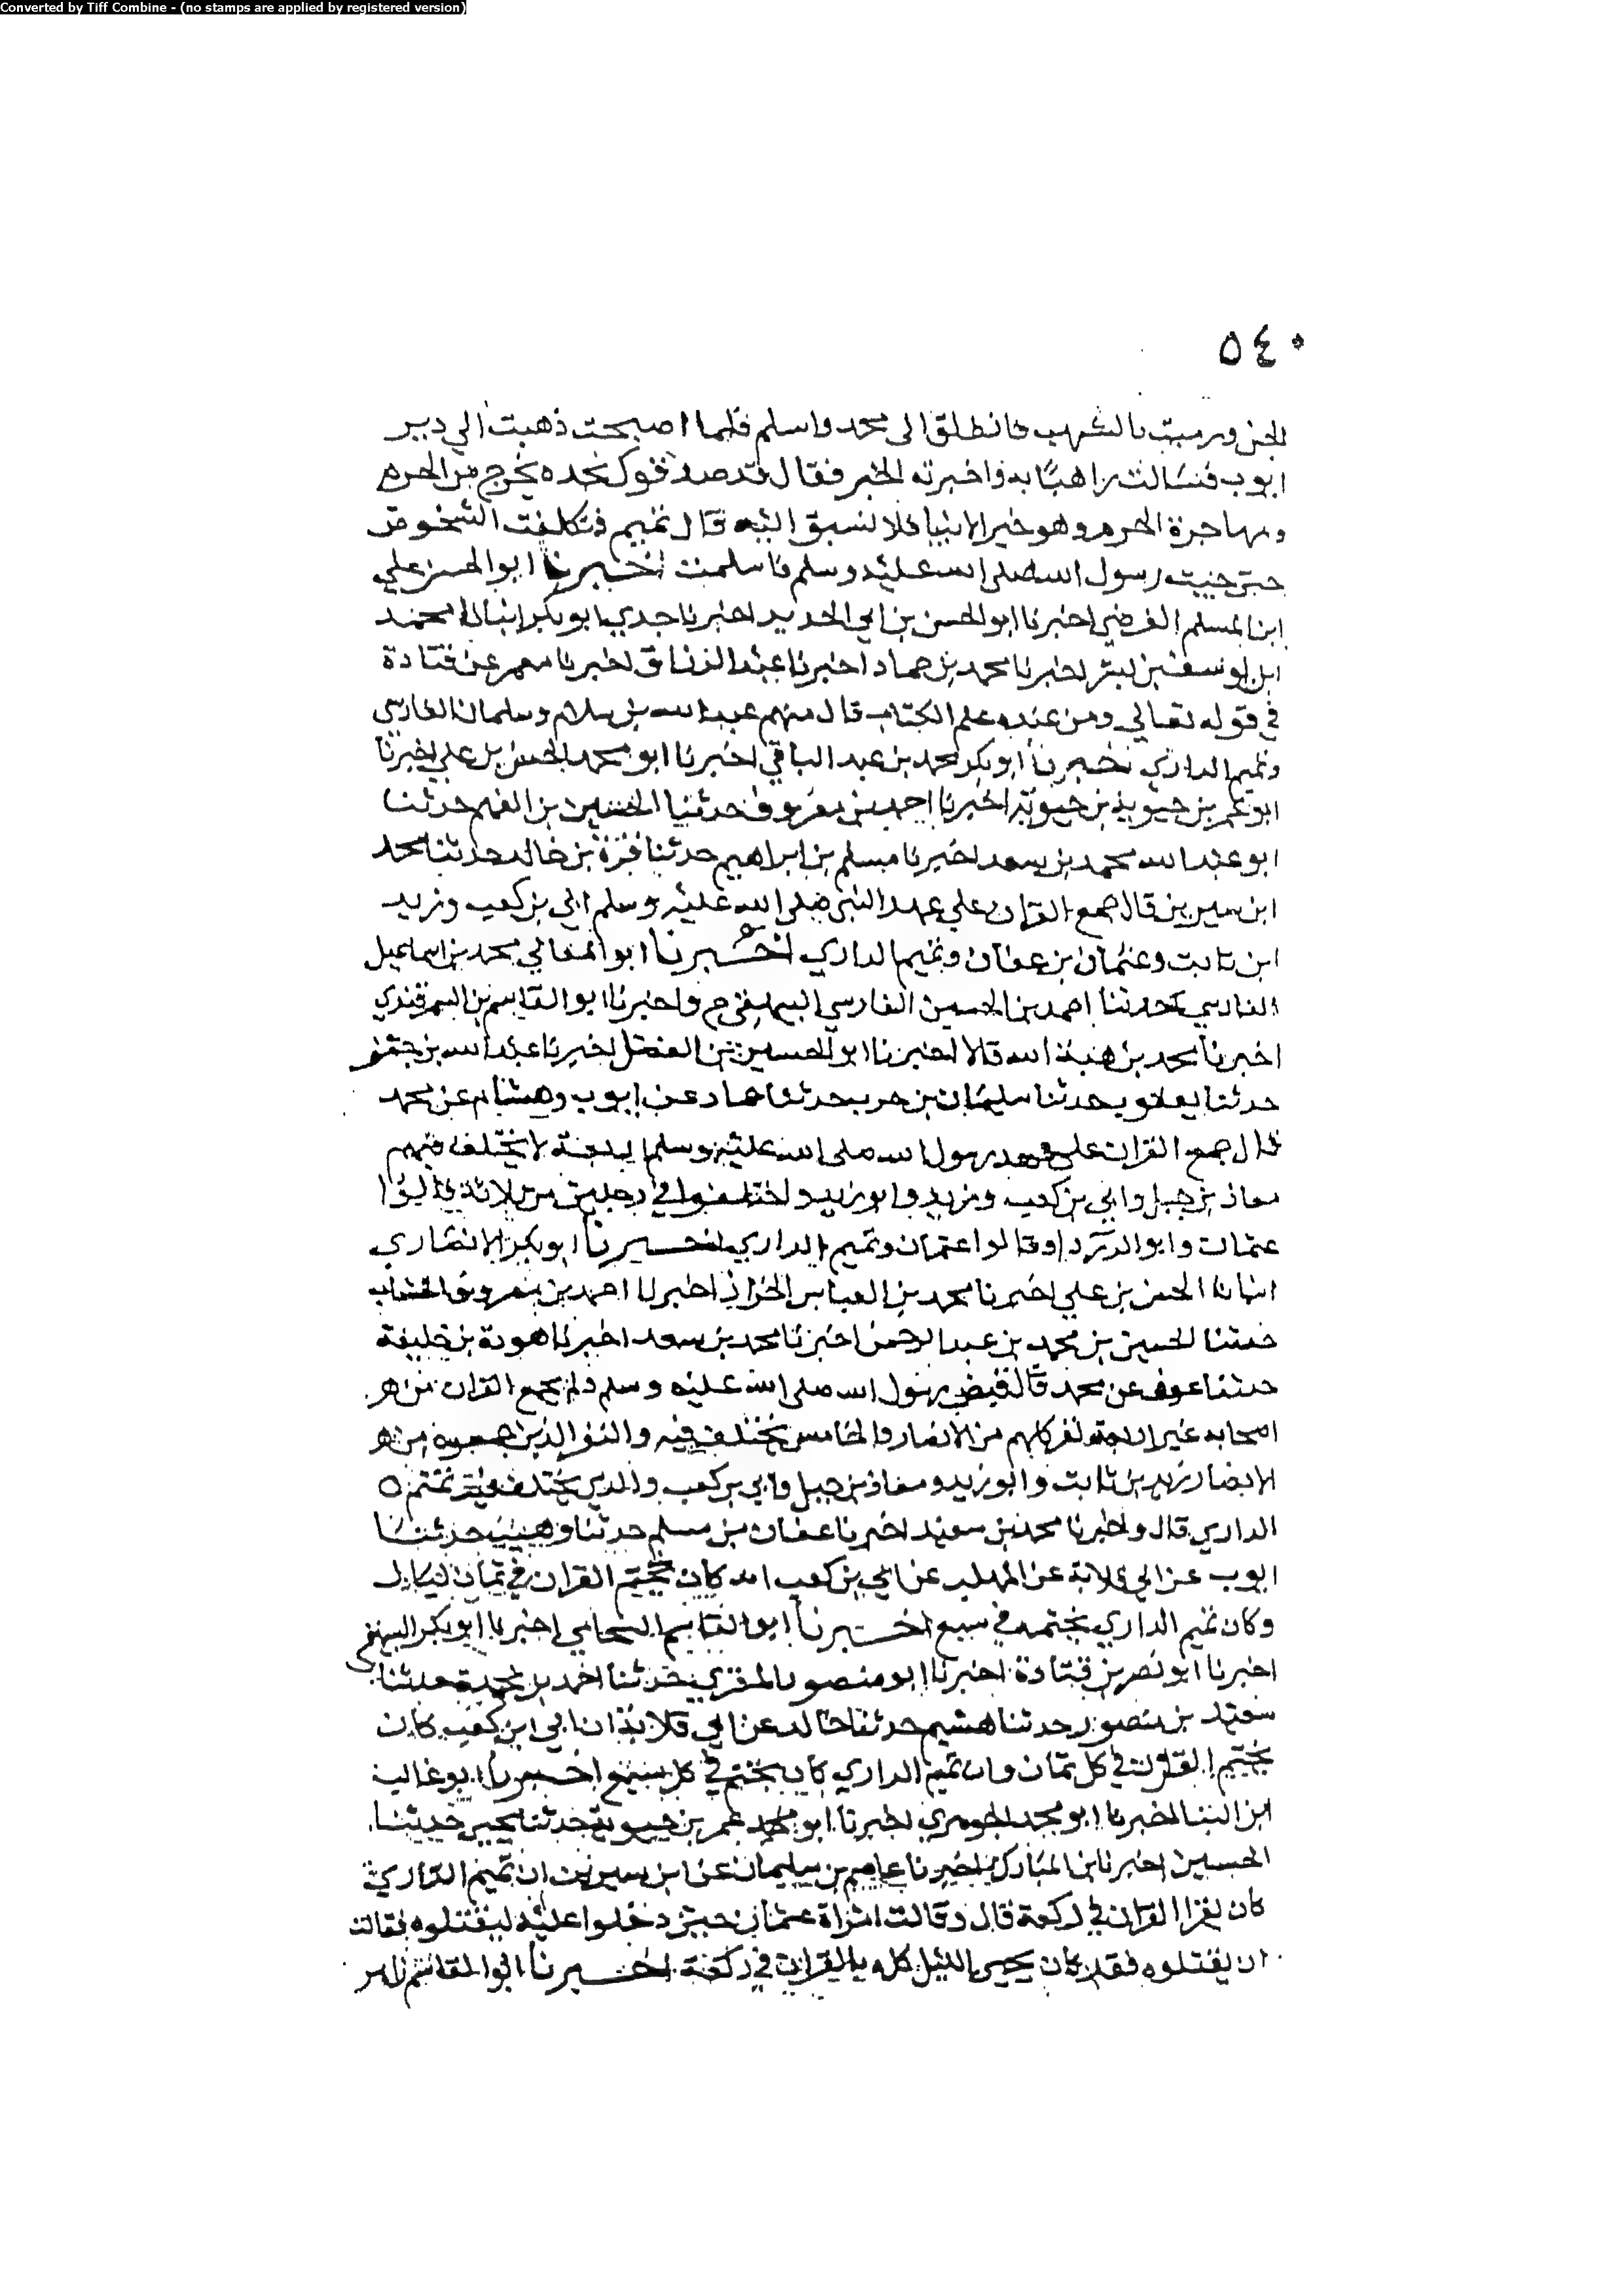 Converted by Tiff Combine - (no stamps are applied by registered version)
٥٤٠
الجن ورميت بالشهب فانطلق الى محمد واسلم فلما اصبحت ذهبت الي دير
ايوب فسالت راهبا به واخبرته الخبر فقال قد صدقوك نجده يخرج من الحرم
ومهاجرة الحرم وهو خير الانبيا فلا تسبق اليه قال تميم فتكلفت الشخوص
حتى جيت رسول الله صلى الله عليه وسلم فاسلمت اخبرنا ابو الحسن علي
ابن المسلم الفرضي اخبرنا ابو الحسن بن ابي الحديد اخبرنا جدي ابو بكر انبانا محمد
ابن يوسف بن بشر اخبرنا محمد بن حماد اخبرنا عبد الرزاق اخبرنا معمر عن قتادة
في قوله تعالي ومن عنده علم الكتاب قال منهم عبد الله بن سلام وسلمان الفارسي
وتميم الداري اخبرنا ابو بكر محمد بن عبد الباقي اخبرنا ابو محمد الحسن بن علي اخبرنا
ابو عمر بن حيوية بن حيوية اخبرنا احمد بن معروف حدثنا الحسين بن الفهم حدثنا
ابو عبد الله محمد بن سعد اخبرنا مسلم بن ابراهيم حدثنا قرة بن خالد حدثنا محمد
ابن سيرين قال جمع القران علي عهد النبي صلى الله عليه وسلم ابي بن كعب وزيد
ابن ثابت وعثمان ابن عفان وتميم الداري اخبرنا ابو المعالي محمد بن اسماعيل
الفارسي حدثنا احمد بن الحسين الفارسي البيهقي ح واخبرنا ابو القاسم بن السمرقندي
اخبرنا محمد بن هبة الله قالا اخبرنا ابو الحسين بن الفضل اخبرنا عبد الله بن جعفر
حدثنا يعقوب حدثنا سليمان بن حرب حدثنا حماد عن ايوب وهشام عن محمد
قال جمع القران على عهد رسول الله صلى الله عليه وسلم اربعة لا يختلف فيهم
معاذ بن جبل وابي بن كعب وزيد وابو زيد واختلفوا في رجلين من ثلاثة قالوا
عثمان وابو الدرداء وقالوا عثمان وتميم الداري اخبرنا ابو بكر الانصاري
انبانا الحسن بن علي اخبرنا محمد بن العباس الخزاز اخبرنا احمد بن معروف الخشاب
حدثنا الحسين بن محمد بن عبد الرحمن اخبرنا محمد بن سعد اخبرنا هوذة بن خليفة
حدثنا عوف عن محمد قال قبض رسول الله صلى الله عليه وسلم ولم يجمع القران من
اصحابه غير اربعة نفر كلهم من الانصار والخامس يختلف فيه والنفر الذين جمعوه من
الانصار زيد بن ثابت وابو زيد ومعاذ بن جبل وابي بن كعب والذي يختلف فيه تميم
الداري قال واخبرنا محمد بن سعد اخبرنا عفان بن مسلم حدثنا وهيب حدثنا
ايوب عن ابي قلابة عن المهلب عن ابي بن كعب انه كان يختم القران في ثمان ليال
وكان تميم الداري يختمه في سبع اخبرنا ابو القاسم الشحامي اخبرنا ابو بكر البيهقي
اخبرنا ابو نصر بن قتادة اخبرنا ابو منصور حدثنا احمد بن نجدة حدثنا
سعيد بن منصور حدثنا هشيم حدثنا خالد عن ابي قلابة ان ابي ابن كعب كان
يختم القران في كل ثمان وان تميم الداري كان يختم في كل سبع اخبرنا ابو غالب
ابن البنا اخبرنا ابو محمد الجوهري اخبرنا ابو عمر بن حيوية حدثنا يحيى حدثنا
الحسين اخبرنا ابن المبارك اخبرنا عاصم بن سليمان عن ابن سيرين ان تميم الداري
كان يقرا القران في ركعة قال وقالت امراة عثمان حين دخلوا عليه ليقتلوه فقالت
ان يقتلوه فقد كان يحيى الليل كله بالقران في ركعة اخبرنا ابو القاسم زاهر